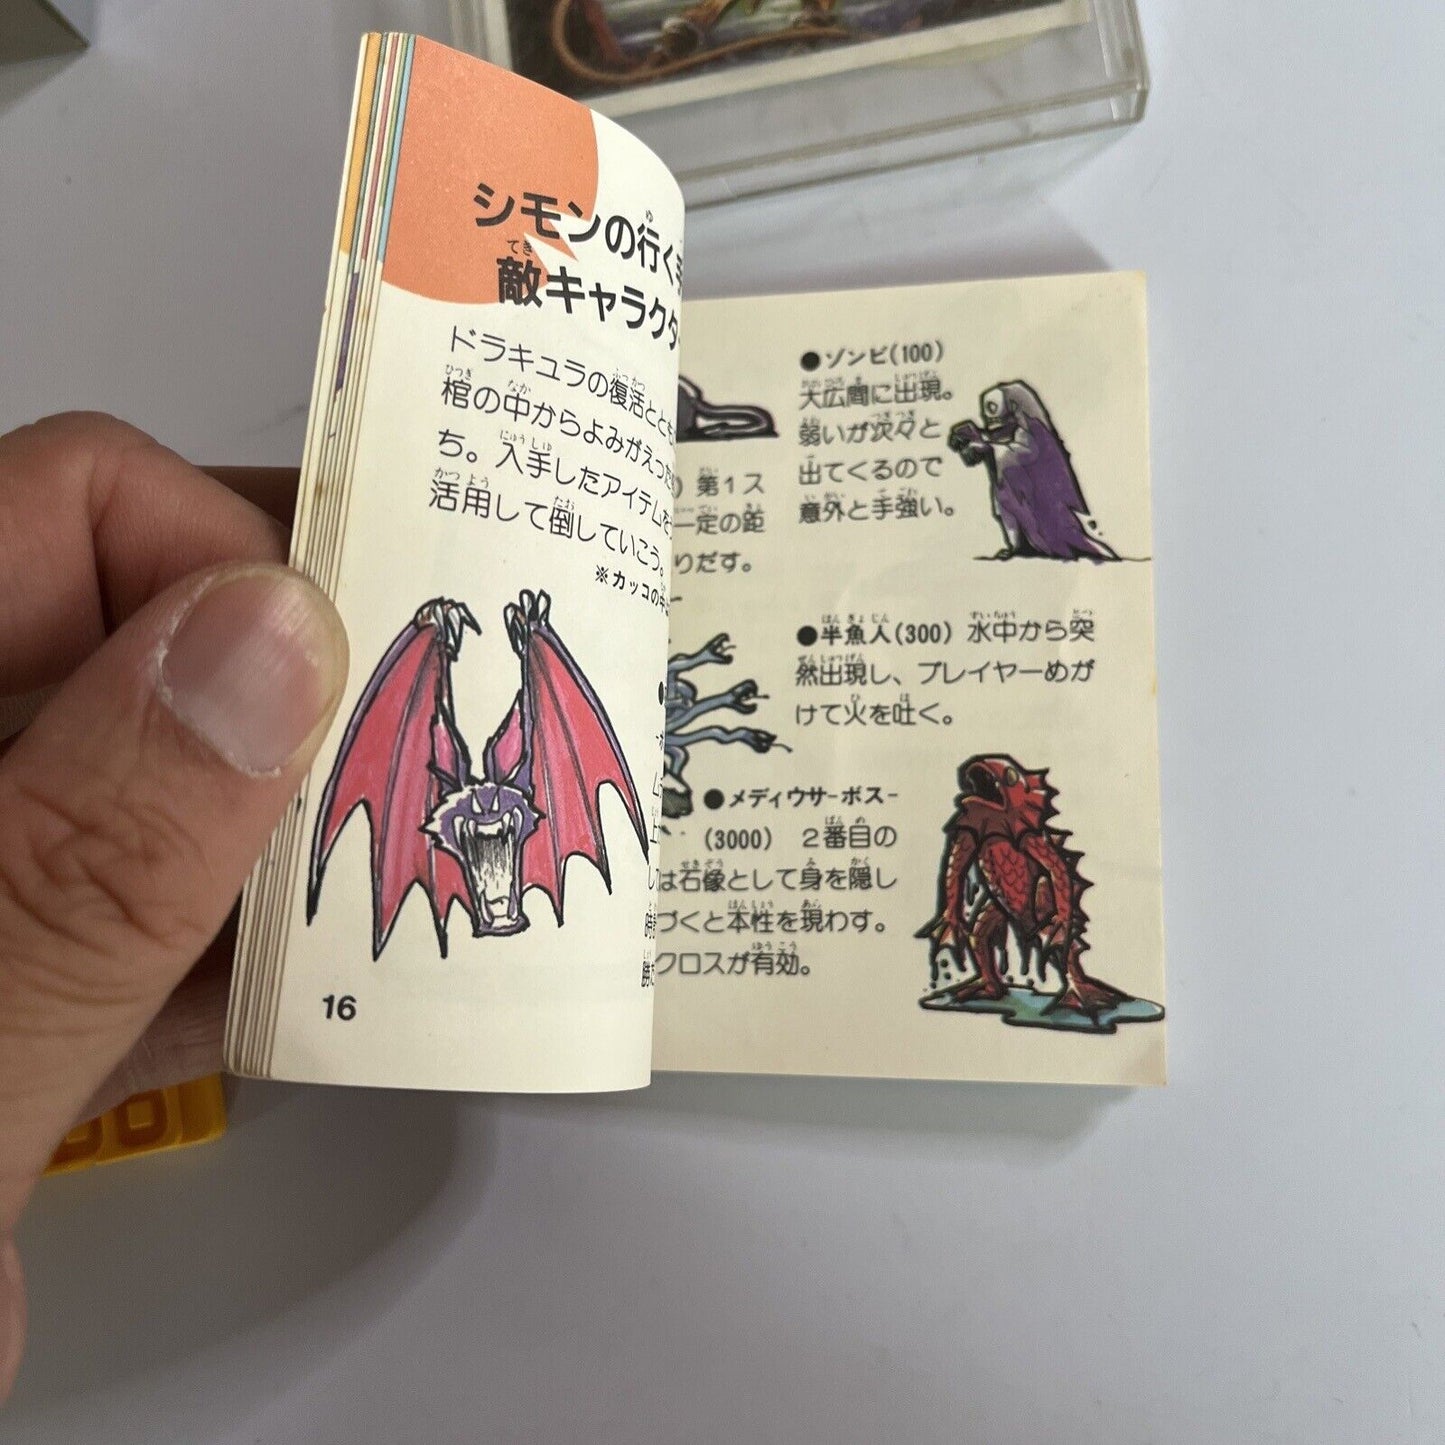 シモンの行く手
敵キャラクター
ドラキュラの復活とともに
棺の中からよみがえった
ち。入手したアイテムを
活用して倒していこう。
※カッコの中
16
●ゾンビ(100)
大広間に出現。
弱いが次々と
出てくるので
意外と手強い。
) 第1ス
一定の距
りだす。
●半魚人(300) 水中から突
然出現し、プレイヤーめが
けて火を吐く。
●メデューサ-ボス-
(3000) 2番目の
は石像として身を隠し
づくと本性を現わす。
クロスが有効。